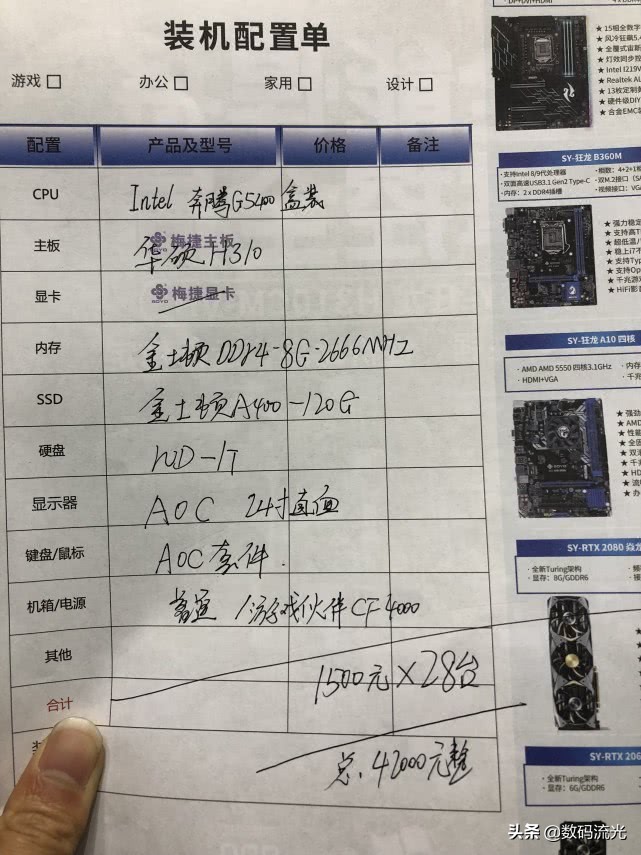 装机配置单
游戏 办公 家用 设计
配置 产品及型号 价格 备注
CPU Intel 奔腾G5400 盒装
主板 梅捷主板 华硕H310
显卡 梅捷显卡
内存 金士顿DDR4-8G-2666MHz
SSD 金士顿A400-120G
硬盘 WD-1T
显示器 AOC 24寸直面
键盘/鼠标 AOC套件.
机箱/电源 /游戏伙伴CF4000
其他
1500元×28台
合计
总.42000元整
★ 15相全数字
★ 风冷狂飙5.4
★ Intel I219V
★ Realtek AL
★ 硬件级DIY
★ 合金EMC装
SY-狂龙 B360M
·支持Intel 8/9代处理器 ·相数:4+2+1相
·双面高速USB3.1 Gen2 Type-C ·双M.2接口(SA
·内存:2 x DDR4插槽 ·视频接口:VGA
★ 强力稳定
★ 支持高T
★ 超低温/
★ 稳上i7不
★ 支持Typ
★ 支持Op
★ 千兆游戏
★ HiFi影音
SY-狂龙 A10 四核
·AMD AMD 5550 四核3.1GHz ·内存
·HDMI+VGA ·千兆
★ 强劲
★ AMD
★ 性能
★ 全固
★ 双通
★ 千兆
★ HD
★ 办
SY-RTX 2080 焱龙
·全新Turing架构
·显存:8G/GDDR6
SY-RTX 206
·全新Turing架构
·显存:6G/GDDR6
头条 @数码流光